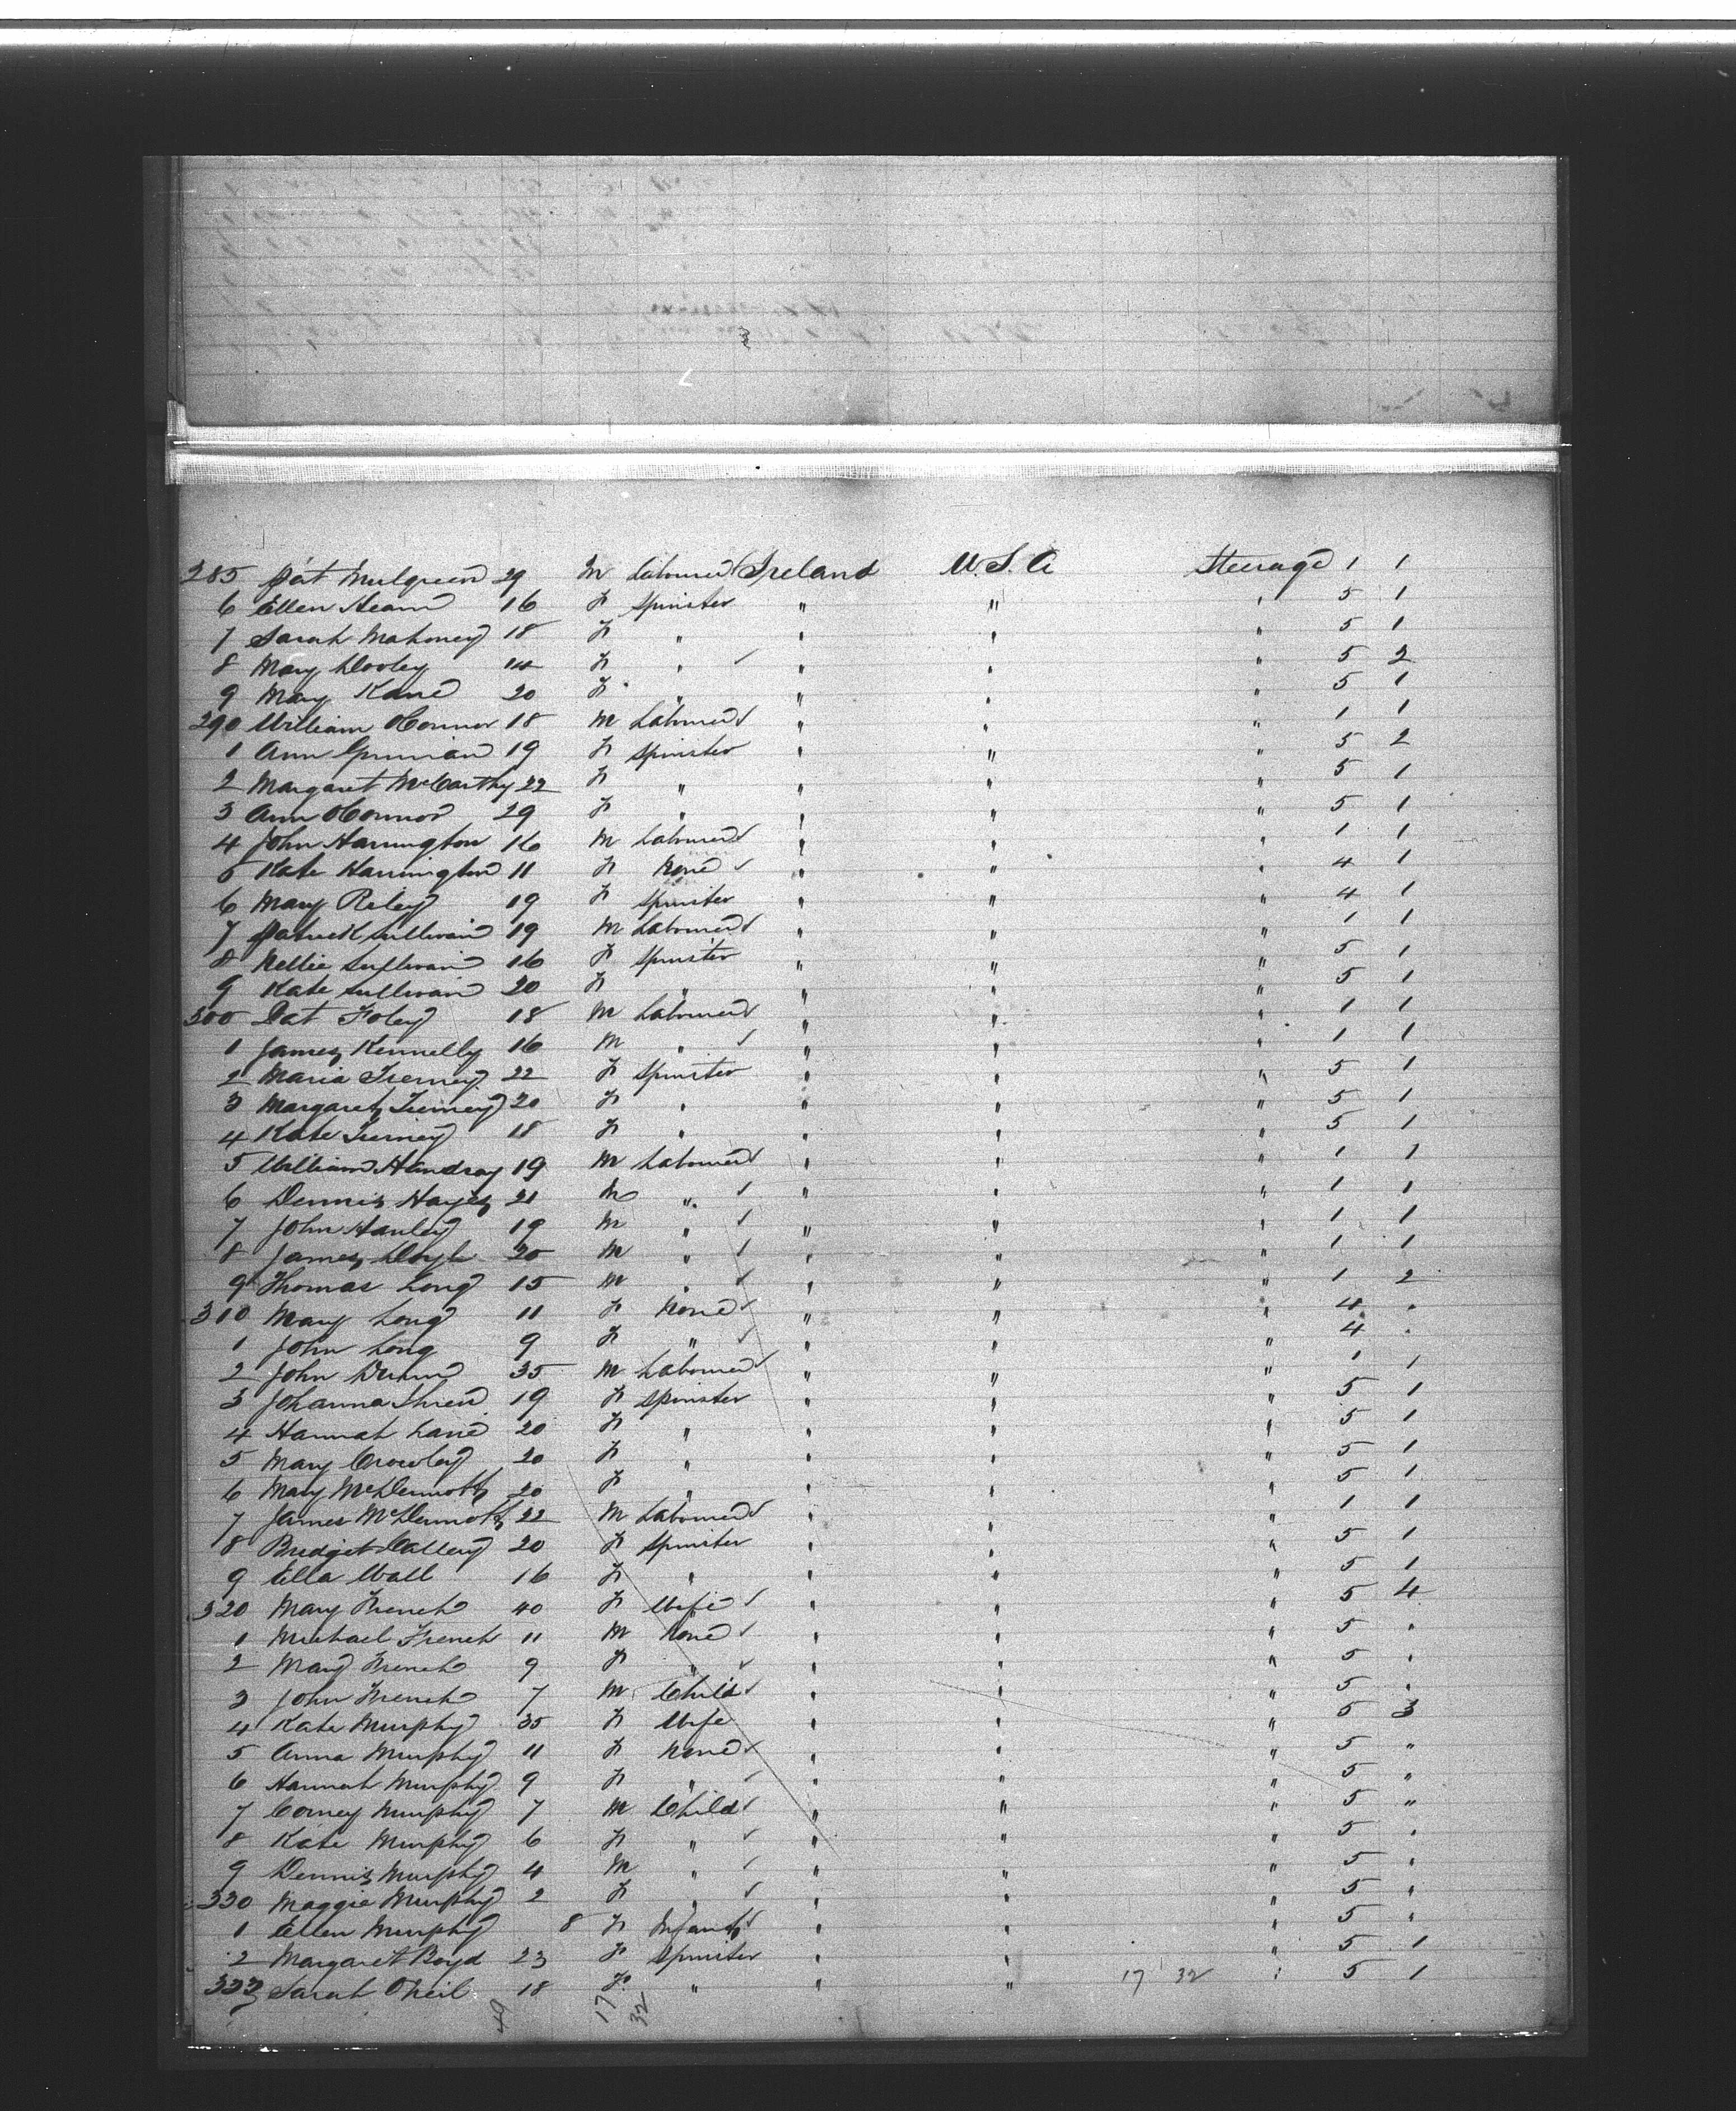 285 Pat Mulgreen 29 M Labourer Ireland U.S.A Steerage 1 1
6 Ellen 16 F Spinster " " " 5 1
7 Sarah Mahoney 18 F " " " " 5 1
8 Mary Dooley 14 F " " " " 5 2
9 Mary Kane 20 F " " " " 5 1
290 William O'Connor 18 M Labourer " " " 1 1
1 Ann 19 F Spinster " " " 5 2
2 Margaret McCarthy 22 F " " " " 5 1
3 Ann O'Connor 29 F " " " " 5 1
4 John Harrington 16 M Labourer " " " 1 1
5 Kate Harrington 11 F None " " " 4 1
6 Mary Riley 19 F Spinster " " " 4 1
7 Patrick Sullivan 19 M Labourer " " " 1 1
8 Nellie Sullivan 16 F Spinster " " " 5 1
9 Kate Sullivan 20 F " " " " 5 1
300 Pat Foley 18 M Labourer " " " 1 1
1 James Kennelly 16 M " " " " 1 1
2 Maria Tierney 22 F Spinster " " " 5 1
3 Margaret Tierney 20 F " " " " 5 1
4 Kate Tierney 18 F " " " " 5 1
5 William 19 M Labourer " " " 1 1
6 Dennis Hayes 21 M " " " " 1 1
7 John Hanley 19 M " " " " 1 1
8 James Doyle 20 M " " " " 1 1
9 Thomas Long 15 M " " " " 1 2
310 Mary Long 11 F None " " " 4 "
1 John Long 9 F " " " " 4 "
2 John 35 M Labourer " " " 1 1
3 Johanna 19 F Spinster " " " 5 1
4 Hannah Lane 20 F " " " " 5 1
5 Mary Crowley 20 F " " " " 5 1
6 Mary McDermott 20 F " " " " 5 1
7 James McDermott 22 M Labourer " " " 1 1
8 Bridget 20 F Spinster " " " 5 1
9 Ella Wall 16 F " " " " 5 1
320 Mary French 40 F Wife " " " 5 4
1 Michael French 11 M None " " " 5 "
2 Mary French 9 F " " " " 5 "
3 John French 7 M Child " " " 5 "
4 Kate Murphy 35 F Wife " " " 5 3
5 Anna Murphy 11 F None " " " 5 "
6 Hannah Murphy 9 F " " " " 5 "
7 Corney Murphy 7 M Child " " " 5 "
8 Kate Murphy 6 F " " " " 5 "
9 Dennis Murphy 4 M " " " " 5 "
330 Maggie Murphy 2 F " " " " 5 "
1 Ellen Murphy 8 F Infant " " " 5 "
2 Margaret Boyd 23 F Spinster " " " 5 1
333 Sarah O'Neil 18 F " " " 17 32 " 5 1
49 17 32